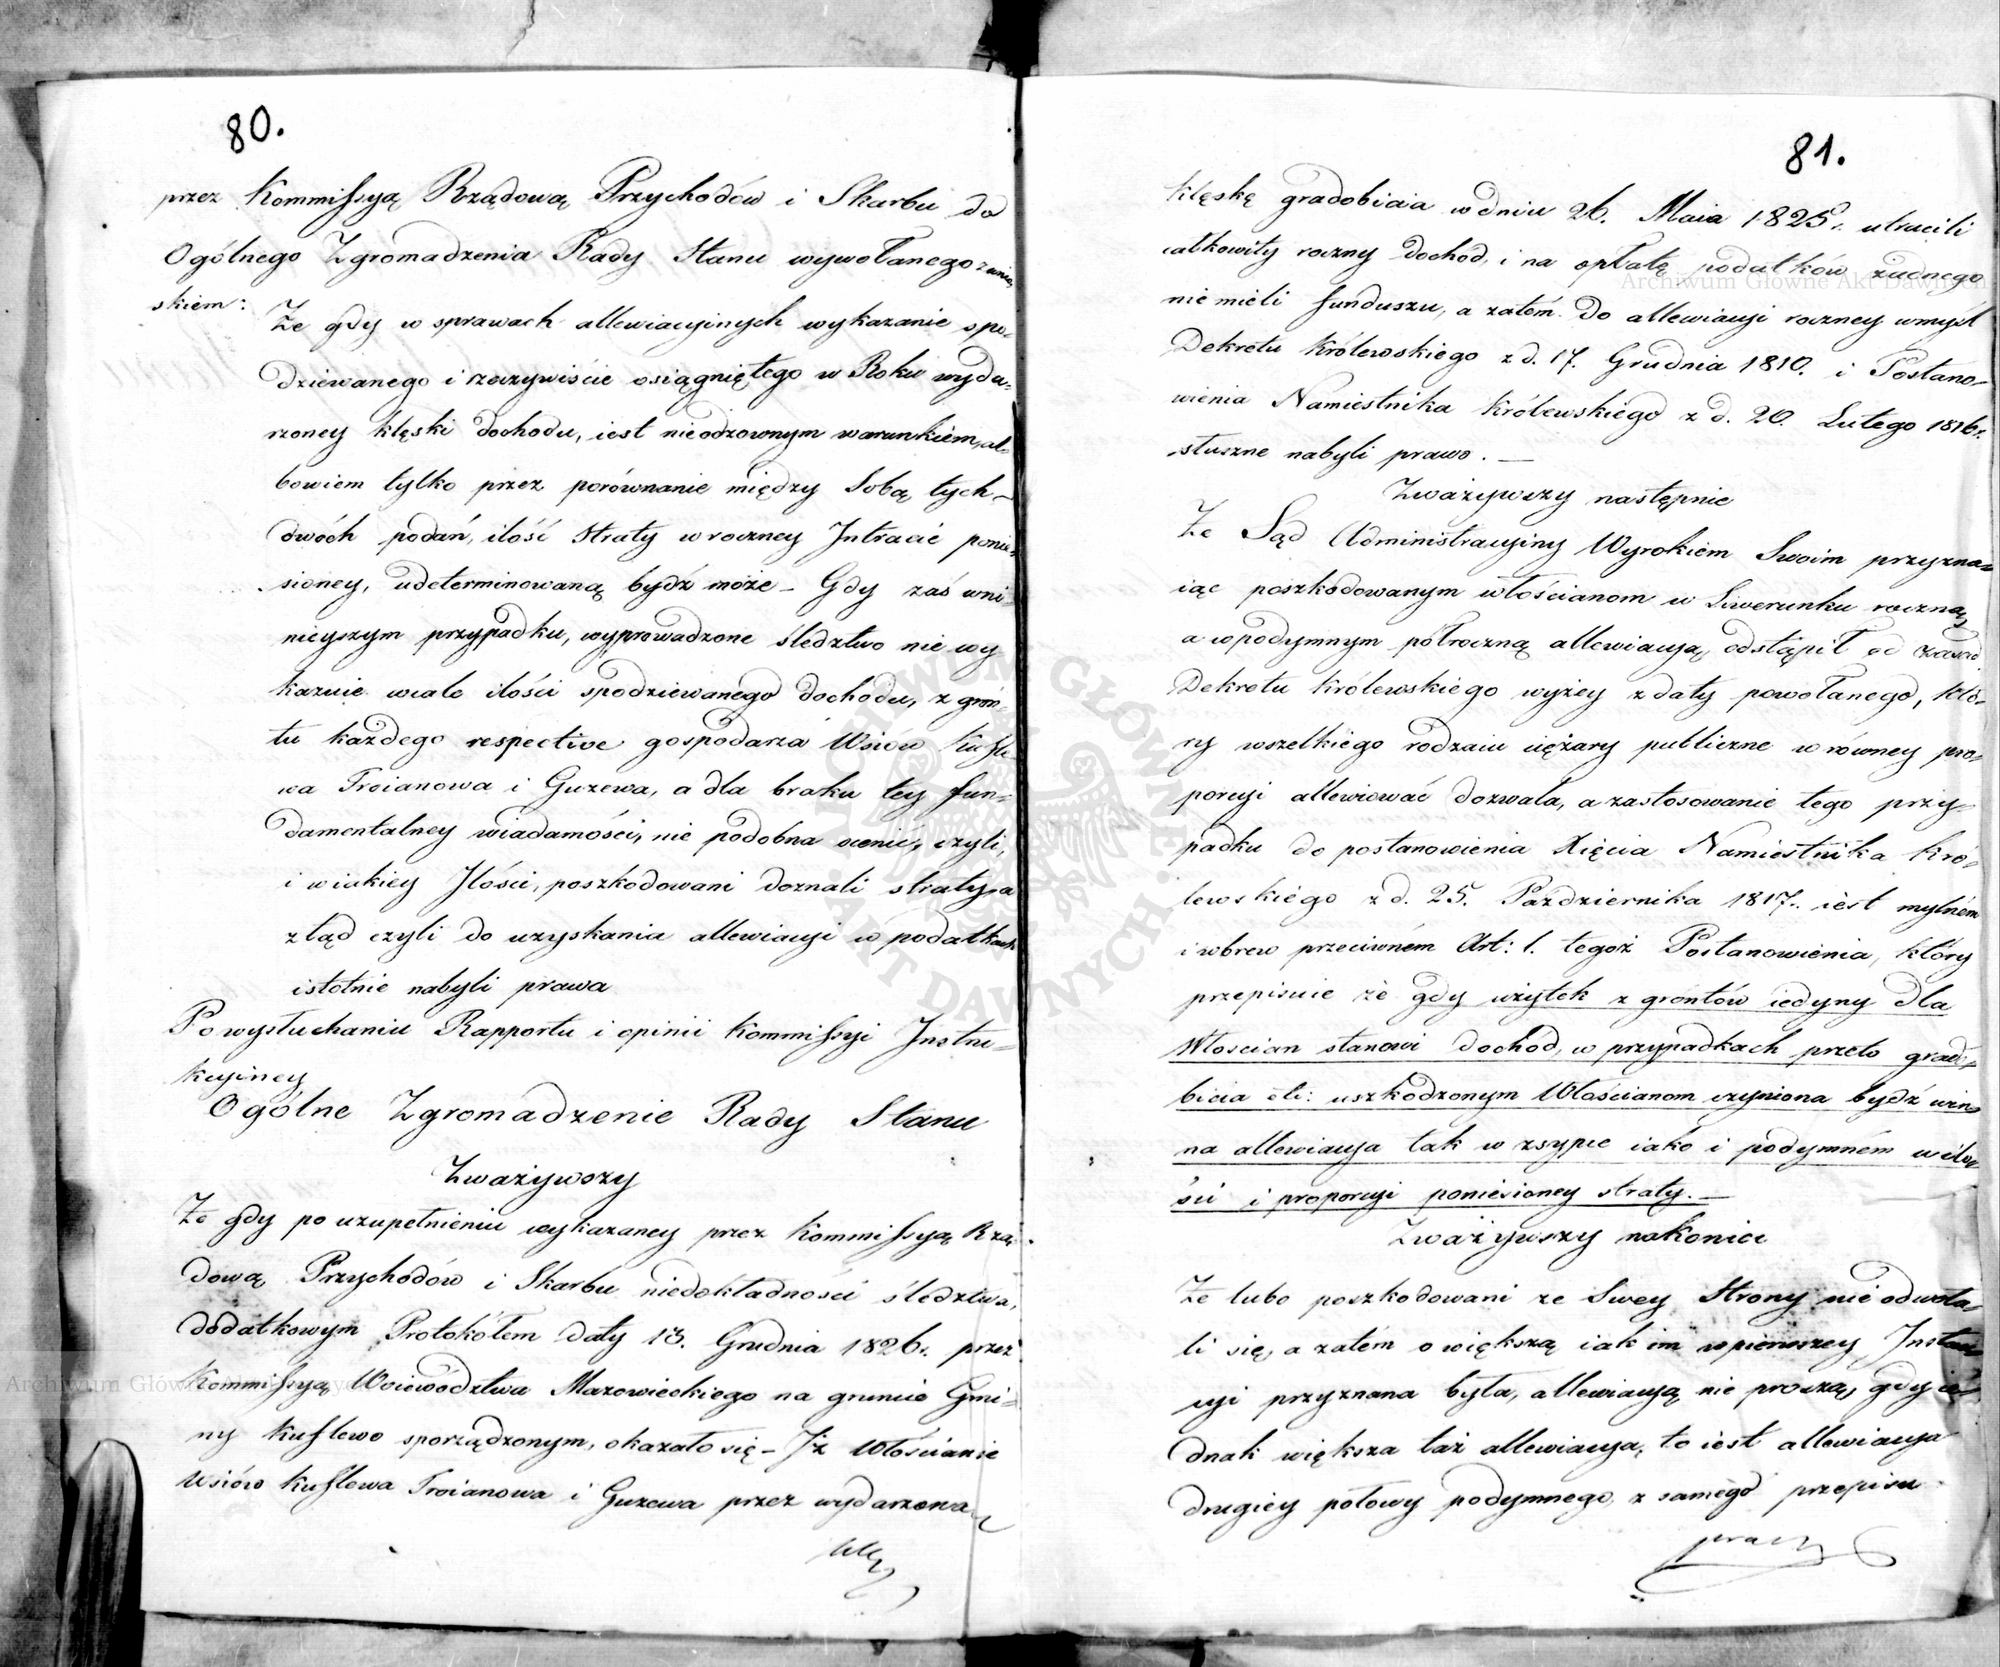 80.
przez Kommissyą Rządową Przychodów i Skarbu do
Ogólnego Zgromadzenia Rady Stanu wywołanego znio-
skiem:
Że gdy w sprawach allewiacyinych wykazanie spo-
dziewanego i rzeczywiście osiągniętego w Roku wyda-
rzoney klęski dochodu, iest nieodzownym warunkiem, al-
bowiem tylko przez porównanie między Sobą tych
dwóch podań, ilość straty w roczney Intracie ponie-
sioney, udeterminowaną bydź może – Gdy zaś w ni-
nieyszym przypadku, wyprowadzone śledztwo nie wy
kazuie wcale ilości spodziewanego dochodu, z gron-
tu każdego respective gospodarza Wsiów Kufle-
wa Troianowa i Guzewa, a dla braku tey fun-
damentalney wiadomości, nie podobna ocenić, czyli,
i w iakiey Ilości, poszkodowani doznali straty, a
ztąd czyli do uzyskania allewiacyi w podatkach
istotnie nabyli prawa
Po wysłuchaniu Rapportu i opinii Kommissyi Instru-
kcyiney
Ogólne Zgromadzenie Rady Stanu
Zważywszy
Że gdy po uzupełnieniu wykazaney przez Kommissyą Rzą-
dową Przychodów i Skarbu niedokładności śledztwa,
dodatkowym Protokółem daty 13. Grudnia 1826r. przez
Kommissyą Woiewództwa Mazowieckiego na gruncie Gmi-
ny Kuflewo sporządzonym, okazało się – Iż Włościanie
Wsiów Kuflewa Troianowa i Guzewa przez wydarzoną
81.
klęskę gradobicia w dniu 26. Maia 1825r. utracili
całkowity roczny dochod, i na opłatę podatków żadnego
nie mieli funduszu, a zatém do allewiacyi roczney w myśl
Dekretu Królewskiego z d. 17. Grudnia 1810. i Postano-
wienia Namiestnika Królewskiego z d. 20. Lutego 1816r.
słuszne nabyli prawo. –
Zważywszy następnie
Że Sąd Administracyiny Wyrokiem Swoim przyzna-
iąc poszkodowanym włościanom w Liwerunku roczną,
a w podymnym półroczną allewiacyą, odstąpił od zasad
Dekretu Królewskiego wyżey z daty powołanego, któ-
ry wszelkiego rodzaiu ciężary publiczne w równey pro-
porcyi allewiować dozwala, a zastosowanie tego przy-
padku do postanowienia Xięcia Namiestnika Kró-
lewskiego z d. 25. Października 1817r. iest mylném
i wbrew przeciwném Art: 1. tegoż Postanowienia, który
przepisuie że gdy użytek z grontów iedyny dla
Włoscian stanowi dochód, w przypadkach przeto grado-
bicia etc: uszkodzonym Włościanom czyniona bydź win-
na allewiacya tak w zsypce iako i podymném w ilo-
ści i proporcyi poniesioney straty. –
Zważywszy nakoniec
Że lubo poszkodowani ze Swey Strony nie odwoła-
li się, a zatém o większą iak im w pierwszey Instan
cyi przyznana była, allewiacyą nie proszą, gdy ie-
dnak większa taż allewiacya, to iest allewiacya
drugiey połowy podymnego, z samego przepisu
prawa
Archiwum Główne Akt Dawnych
ARCHIWUM GŁÓWNE AKT DAWNYCH